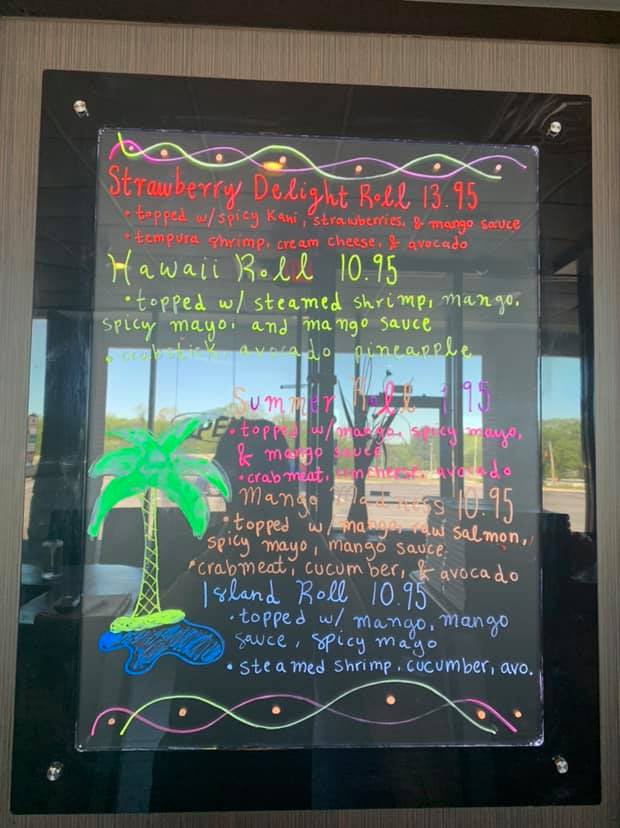 Strawberry Delight Roll 13.95
• topped w/spicy Kani, strawberries, & mango sauce
• tempura shrimp, cream cheese, & avocado
Hawaii Roll 10.95
• topped w/ steamed shrimp, mango,
spicy mayo, and mango sauce
• crabstick, avocado pineapple
Summer Roll
• topped w/mango, spicy mayo,
& mango sauce
• crabmeat, avocado
Mango Madness 10.95
• topped w/ mango, raw salmon,
spicy mayo, mango sauce
• crabmeat, cucumber, & avocado
Island Roll 10.95
• topped w/ mango, mango
sauce, spicy mayo
• steamed shrimp, cucumber, avo.